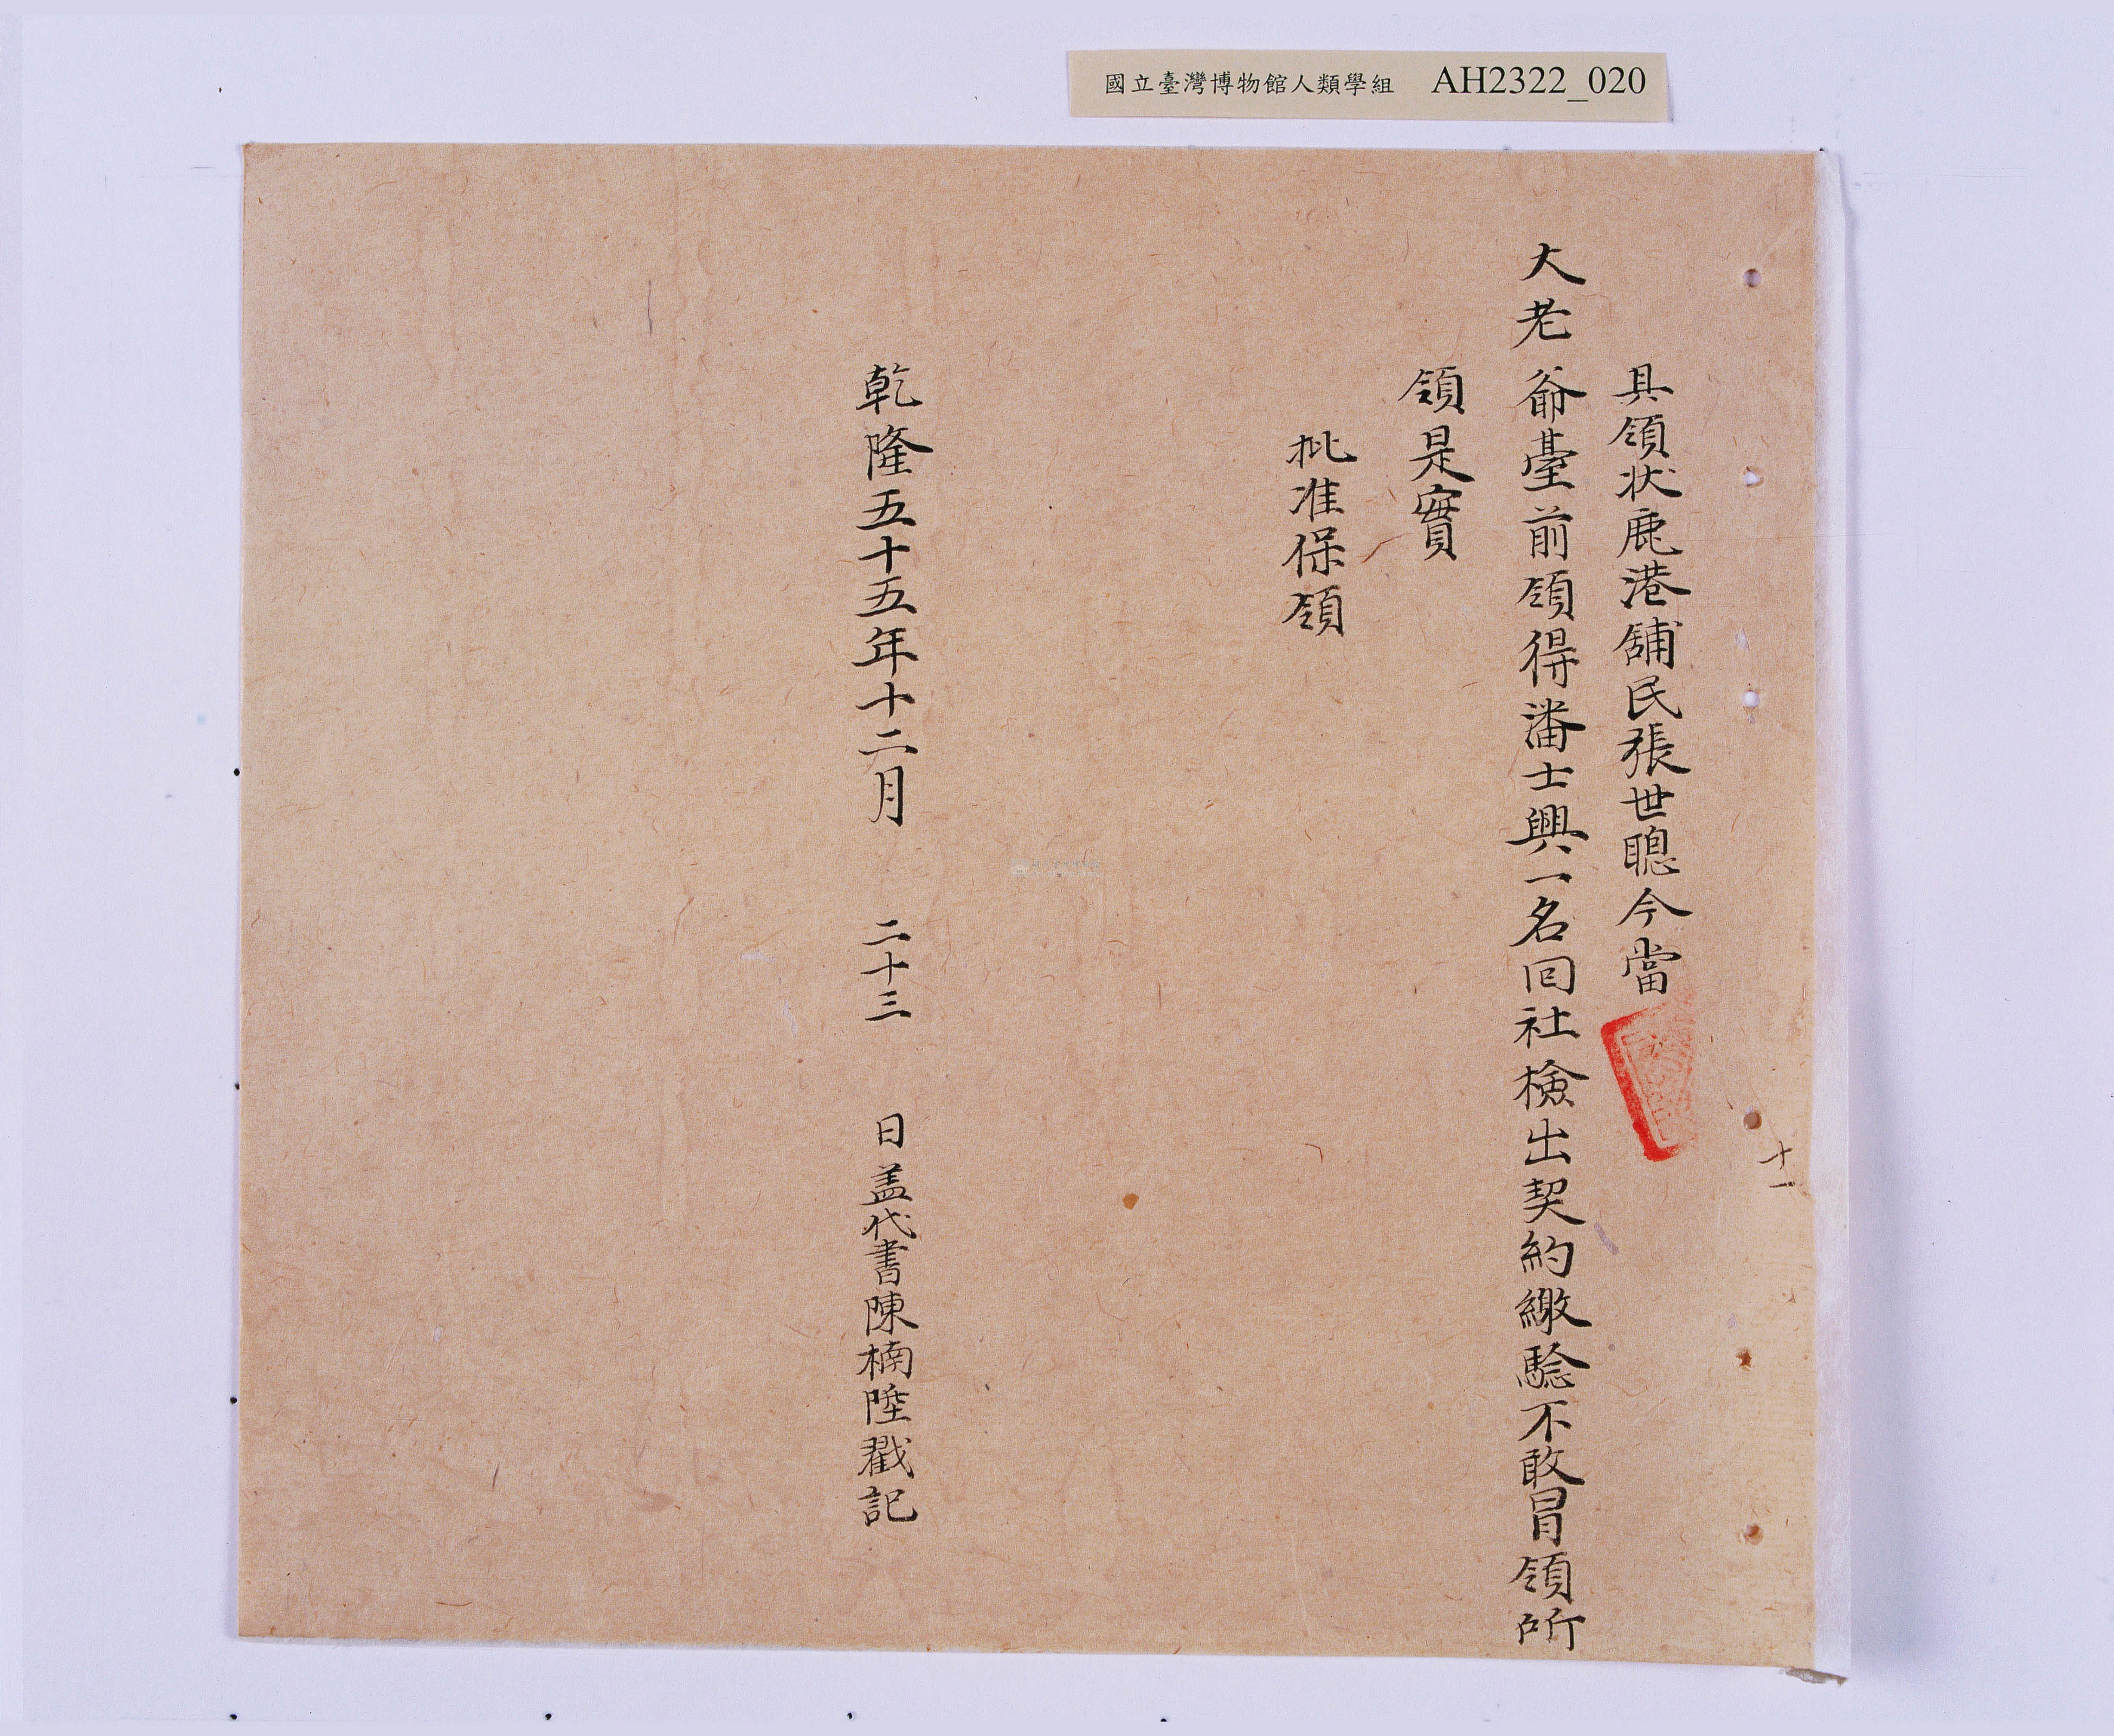 國立臺灣博物館人類學組 AH2322_020
十一
具領狀鹿港舖民張世聰今當
大老爺臺前領得潘士興一名回社檢出契約繳驗不敢冒領所
領是實
批准保領
乾隆五十五年十二月 二十三 日盖代書陳楠陞戳記